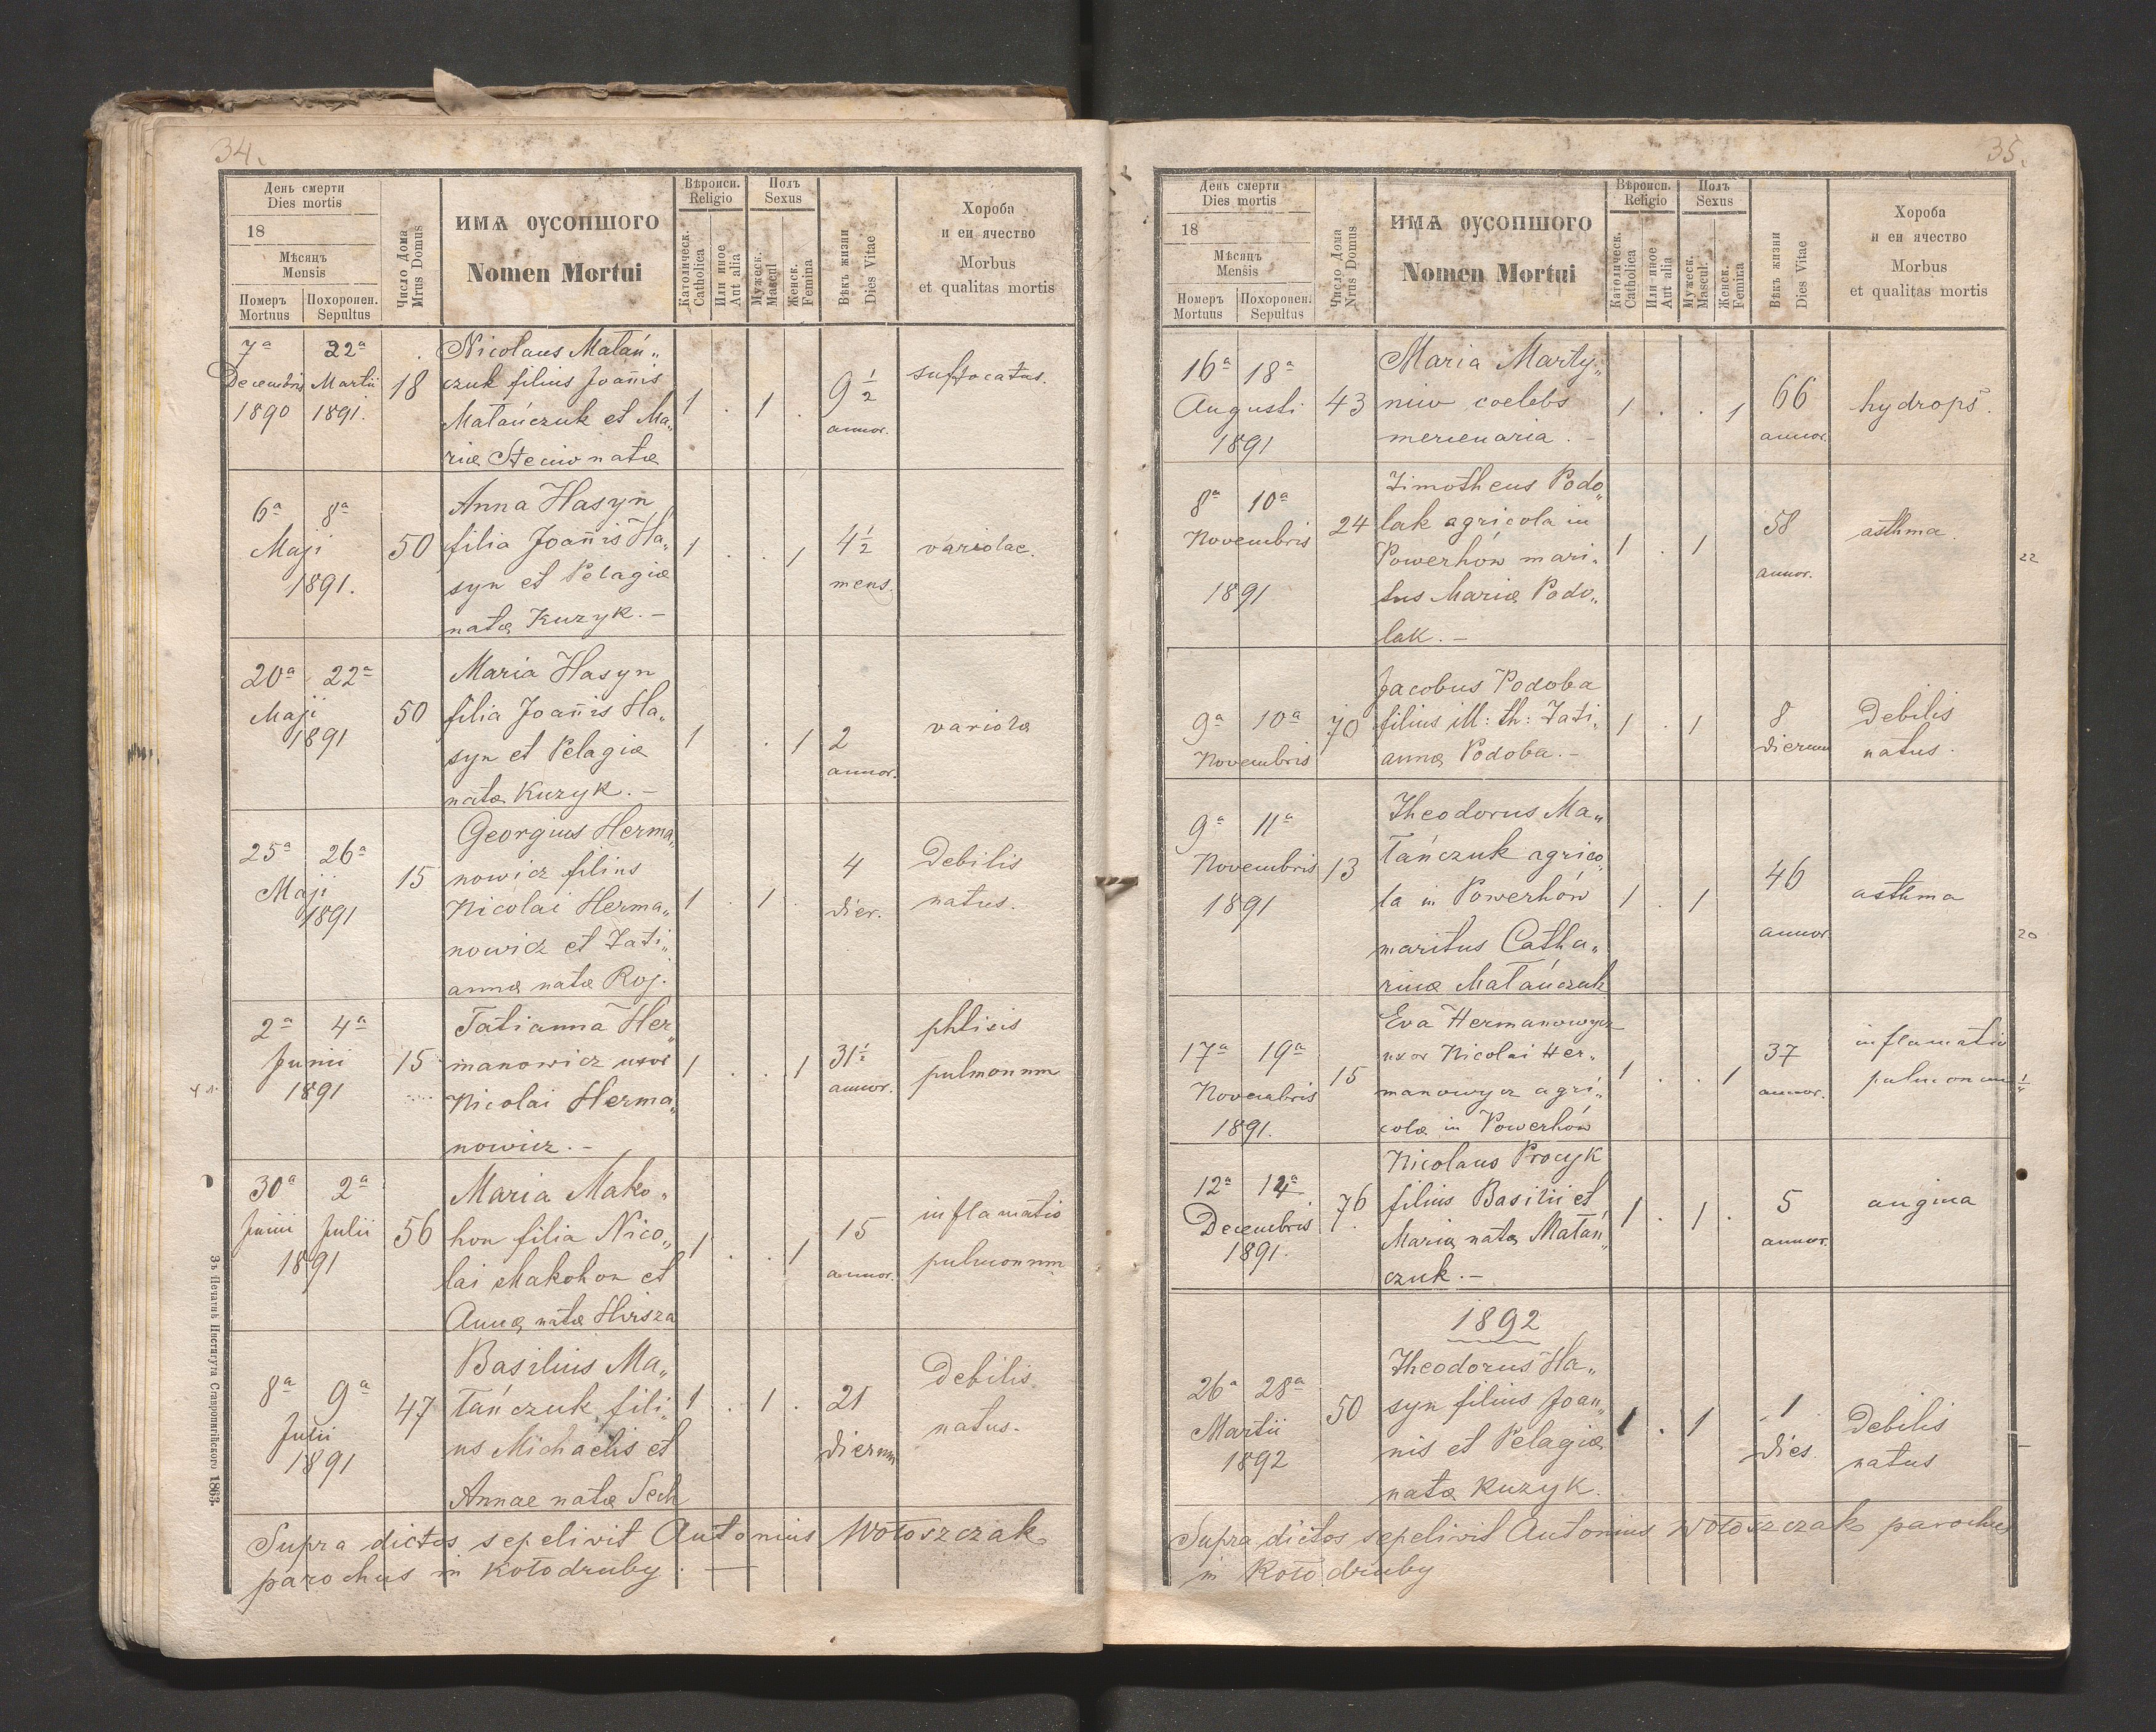 34.
День смерти
Dies mortis
18
Мѣсяцъ
Mensis
Померъ
Mortuus
Похоронен.
Sepultus
Число Дома
Mrus Domus
ИМѦ ОУСОПШОГО
Nomen Mortui
Вѣроисп.
Religio
Католическ.
Catholica
Или иное
Aut alia
Полъ
Sexus
Мужеск.
Mascul
Женск.
Femina
Вѣкъ жизни
Dies Vitae
Хороба
и еи ячество
Morbus
et qualitas mortis
7ª 22ª
Decembris Martii
1890 1891.
18
Nicolaus Matań„
czuk filius Joannis
Matańczuk et Ma„
riæ Steciw natæ
1 . 1
9 1/2
annor.
suffocatus.
6ª 8ª
Maji
1891.
50
Anna Hasyn
filia Joannis Ha„
syn et Pelagiæ
natæ Kuzyk. –
1 . . 1
4 1/2
mens.
variolae.
20ª 22ª
Maji
1891
50
Maria Hasyn
filia Joannis Ha„
syn et Pelagiæ
natæ Kuzyk. –
1 . . 1
2
annor.
variolæ
25ª 26ª
Maji
1891
15
Georgius Herma„
nowicz filius
Nicolai Herma„
nowicz et Tati„
annæ natæ Roj.
1 . 1 .
4
dier.
Debilis
natus.
2ª 4ª
Junii
1891
15
Tatianna Her„
manowicz uxor
Nicolai Herma„
nowicz. –
1 . . 1
31 1/2
annor.
phtisis
pulmonum
30ª 2ª
Junii Julii
1891
56
Maria Mako„
hon filia Nico„
lai Makohon et
Annæ natæ Hirsza
1 . . 1
15
annor.
inflamatio
pulmonum
8ª 9ª
Julii
1891
47
Basilius Ma„
tańczuk fili„
us Michaelis et
Annae natæ Sech
1 . 1 .
21
dierum
Debilis
natus.
Supra dictos sepelivit Antonius Wołoszczak
parochus in Kołodruby. —
Зъ Печатнѣ Института Ставропигійского 1863.
35.
День смерти
Dies mortis
18
Мѣсяцъ
Mensis
Померъ
Mortuus
Похоронен.
Sepultus
Число Дома
Nrus Domus
ИМѦ ОУСОПШОГО
Nomen Mortui
Вѣроисп.
Religio
Католическ.
Catholica
Или иное
Aut alia
Полъ
Sexus
Мужеск.
Mascul.
Женск.
Femina
Вѣкъ жизни
Dies Vitae
Хороба
и еи ячество
Morbus
et qualitas mortis
16ª 18ª
Augusti
1891
43
Maria Marty„
niw coelebs
mercenaria. –
1 . . 1
66
annor.
hydrops.
8ª 10ª
Novembris
1891
24
Timotheus Podo„
lak agricola in
Powerhów mari„
tus Mariæ Podo„
lak. –
1 . 1
58
annor.
asthma.
22
9ª 10ª
Novembris
70
Jacobus Podoba
filius ill: th: Tati„
annæ Podoba. –
1 . 1
8
dierum
Debilis
natus.
9ª 11ª
Novembris
1891
13
Theodorus Ma„
tańczuk agrico„
la in Powerhów
maritus Catha„
rinæ Matańczuk
1 . 1
46
annor.
asthma
20
17ª 19ª
Novembris
1891.
15
Eva Hermanowycz
uxor Nicolai Her„
manowycz agri„
colæ in Powerhów
1 . . 1
37
annor.
inflamatio
pulmonum
12ª 14ª
Decembris
1891.
76
Nicolaus Procyk
filius Basilii et
Mariæ natæ Matań„
czuk. –
1 . 1 .
5
annor.
angina
1892
26ª 28ª
Martii
1892
50
Theodorus Ha„
syn filius Joan„
nis et Pelagiæ
natæ Kuzyk.
1 . 1
1
dies
Debilis
natus
Supra dictos sepelivit Antonius Wołoszczak parochus
in Kołodruby